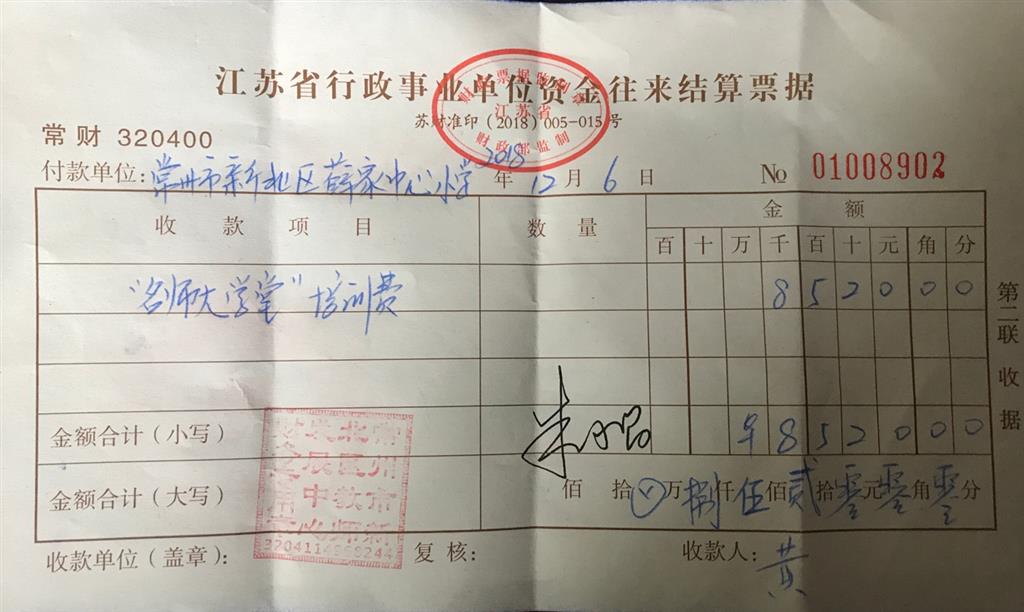 江苏省行政事业单位资金往来结算票据
财政票据监制章
江苏省
财政部监制
苏财准印(2018)005-015号
常财 320400
付款单位:常州市新北区薛家中心小学 2018年12月6日 № 01008902
收款项目 数量 金额
百 十 万 千 百 十 元 角 分
"名师大学堂"培训费 8 5 2 0 0 0
金额合计(小写) ¥ 8 5 2 0 0 0
金额合计(大写) 佰 拾 万 捌仟 伍佰 贰拾 零元 零角 零分
收款单位(盖章): 复核: 收款人:黄
第二联 收据